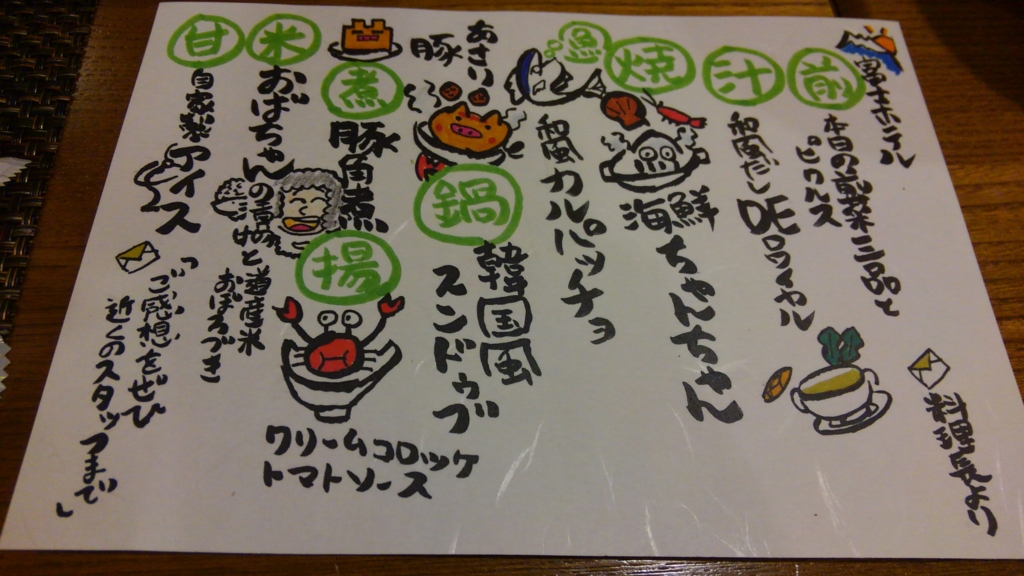 富士ホテル
前
本日の前菜三品と
ピクルス
汁
和風だし
DEロワイヤル
焼
海鮮
ちゃんちゃん
魚
和風カルパッチョ
あさり
豚
鍋
韓国風
スンドゥブ
煮
豚角煮
揚
クリームコロッケ
トマトソース
米
おばちゃんの
と道産米
おぼろづき
甘
自家製アイス
「ご感想をぜひ
近くのスタッフまで」
料理長より